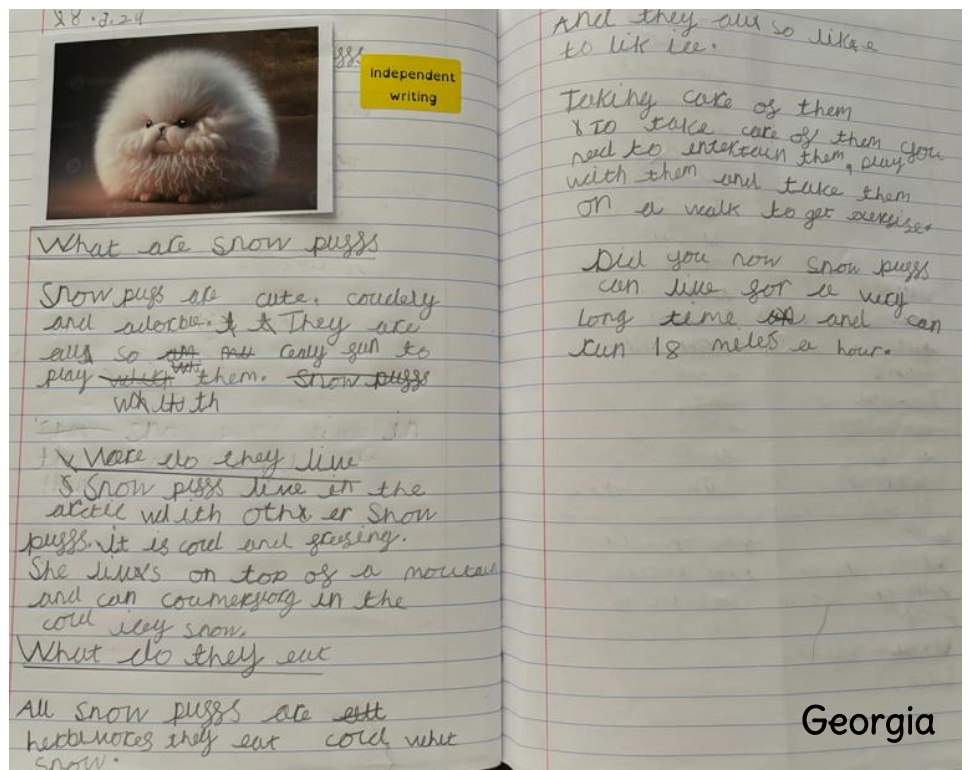 28.3.24
Independent
writing
What are snow puffs
Snow pufs are cute, coudely
and adorble. They are
all so realy fun to
play with them. Snow puffs
Where do they live
Snow puffs live in the
arctic with other Snow
puffs. It is cord and freesing.
She lives on top of a mountain
and can in the
cord icey snow.
What do they eat
All snow puffs are eat
herbivores they eat cord whit
snow.
And they all so like
to lik ice.
Taking care of them
To take care of them you
need to entertain them, play
with them and take them
on a walk to get exersise.
Did you now snow puffs
can live for a very
long time and can
run 18 meles a hour.
Georgia